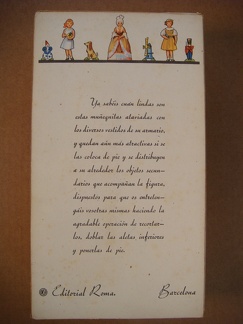 Ya sabéis cuan lindas son
estas muñequitas ataviadas con
los diversos vestidos de su armario,
y quedan aún más atractivas si se
las coloca de pie y se distribuyen
a su alrededor los objetos secun-
darios que acompañan la figura,
dispuestos para que os entreten-
gáis vosotras mismas haciendo la
agradable operación de recortar-
los, doblar las aletas inferiores
y ponerlas de pie.
Editorial Roma. Barcelona